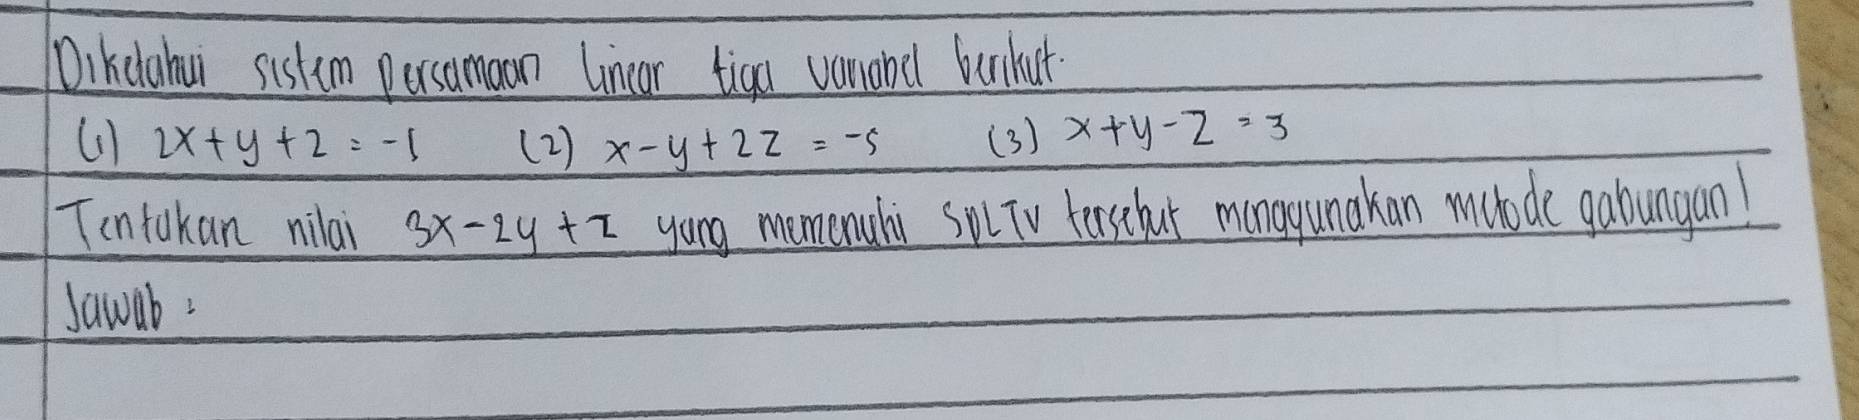 Diketahui sistem persamaan linear tiga variabel berikut.
(1) 2x+y+z = -1 (2) x-y+2z = -5 (3) x+y-z = 3
Tentukan nilai 3x-2y+z yang memenuhi SPLTV tersebut menggunakan metode gabungan!
Jawab :